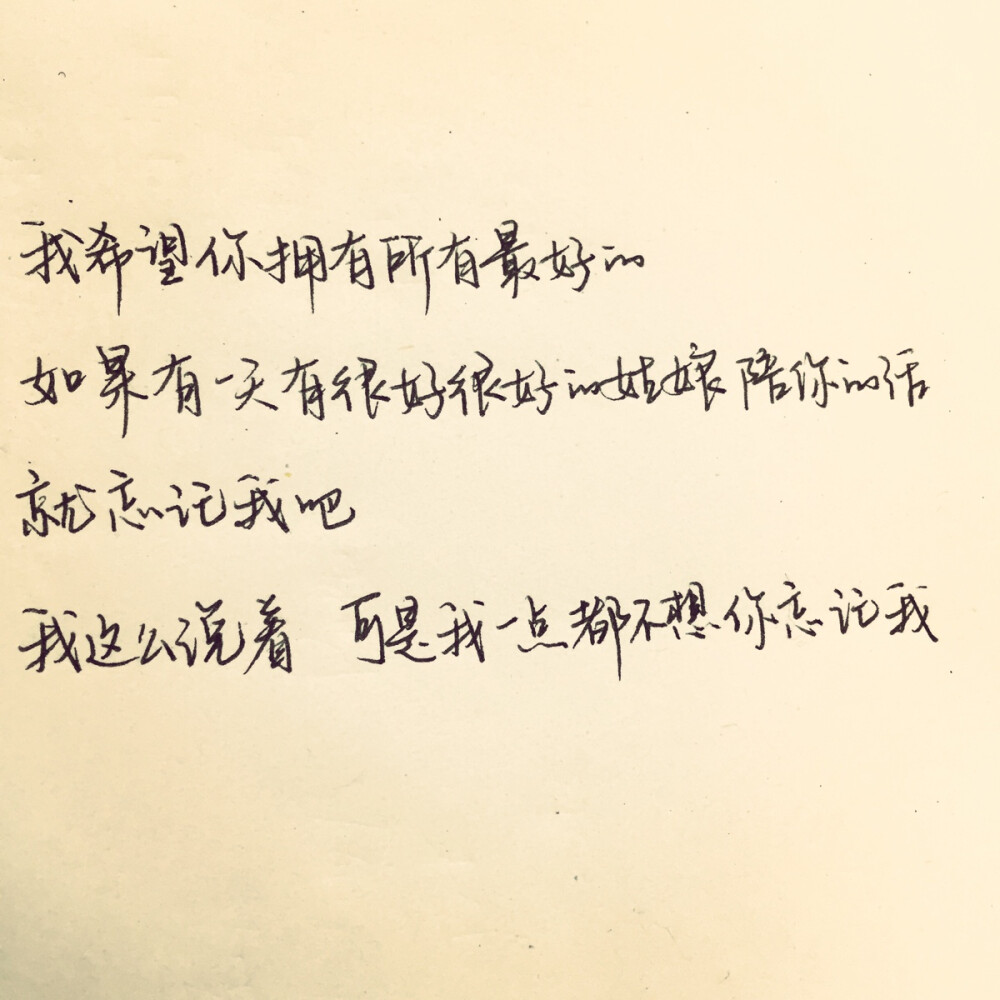 我希望你拥有所有最好的
如果有一天有很好很好的姑娘陪你的话
就忘记我吧
我这么说着 可是我一点都不想你忘记我